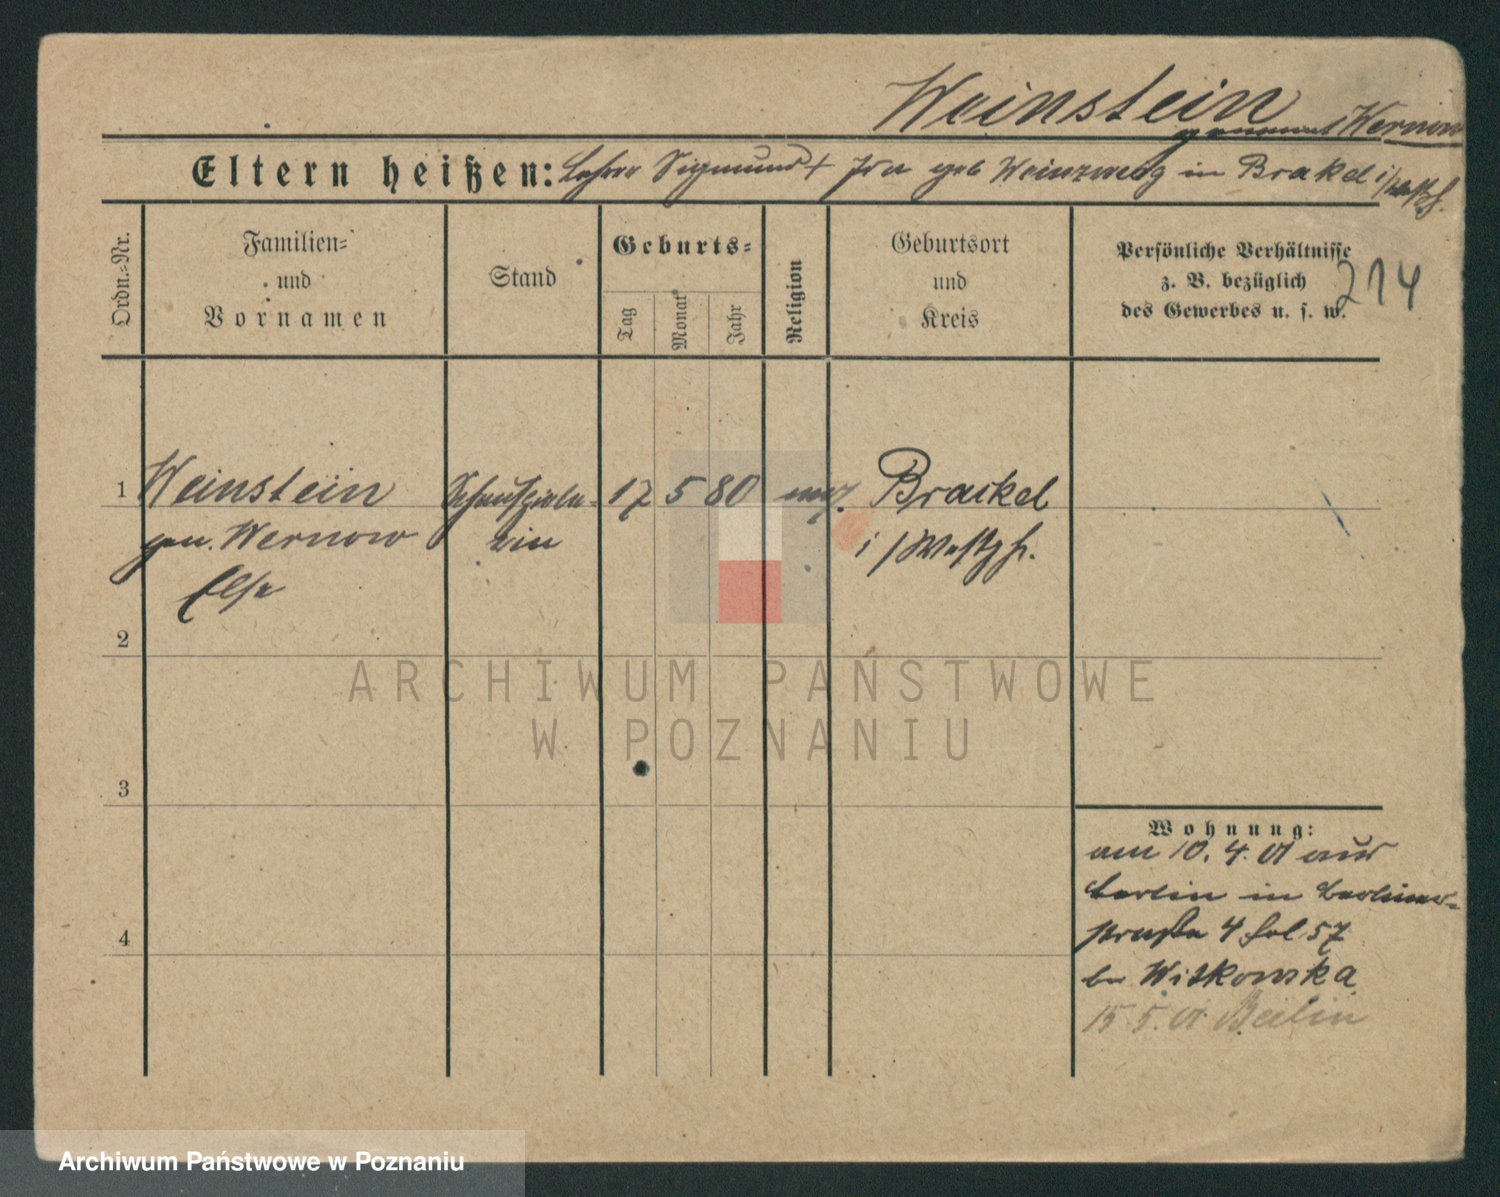 Weinstein
genannt Wernow
Eltern heißen: Lehrer Sigmund † Ida geb Weinzweig in Brakel i/Westf.
Ordn.-Nr.
Familien-
und
Vornamen
Stand
Geburts-
Tag
Monat
Jahr
Religion
Geburtsort
und
Kreis
Persönliche Verhältnisse
z. B. bezüglich
des Gewerbes u. s. w.
214
1 Weinstein Schauspiele- 17 5 80 mos. Brackel
gen. Wernow rin i/Westph.
Else
2
3
4
Wohnung:
am 10. 4. 01 aus
Berlin in Berliner-
straße 4 fol 57
bei Witkowska
15 5. 01 Berlin
ARCHIWUM PAŃSTWOWE
W POZNANIU
Archiwum Państwowe w Poznaniu